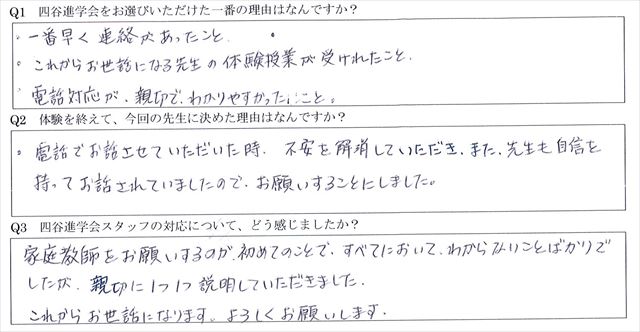 Q1 四谷進学会をお選びいただけた一番の理由はなんですか？
・一番早く連絡があったこと.
・これからお世話になる先生の体験授業が受けれたこと、
・電話対応が、親切で、わかりやすかったこと。
Q2 体験を終えて、今回の先生に決めた理由はなんですか？
・電話でお話させていただいた時、不安を解消していただき、また、先生も自信を
持ってお話されていましたので、お願いすることにしました。
Q3 四谷進学会スタッフの対応について、どう感じましたか？
家庭教師をお願いするのが、初めてのことで、すべてにおいて、わからないことばかりで
したが、親切に1つ1つ説明していただきました.
これからお世話になります。よろしくお願いします.